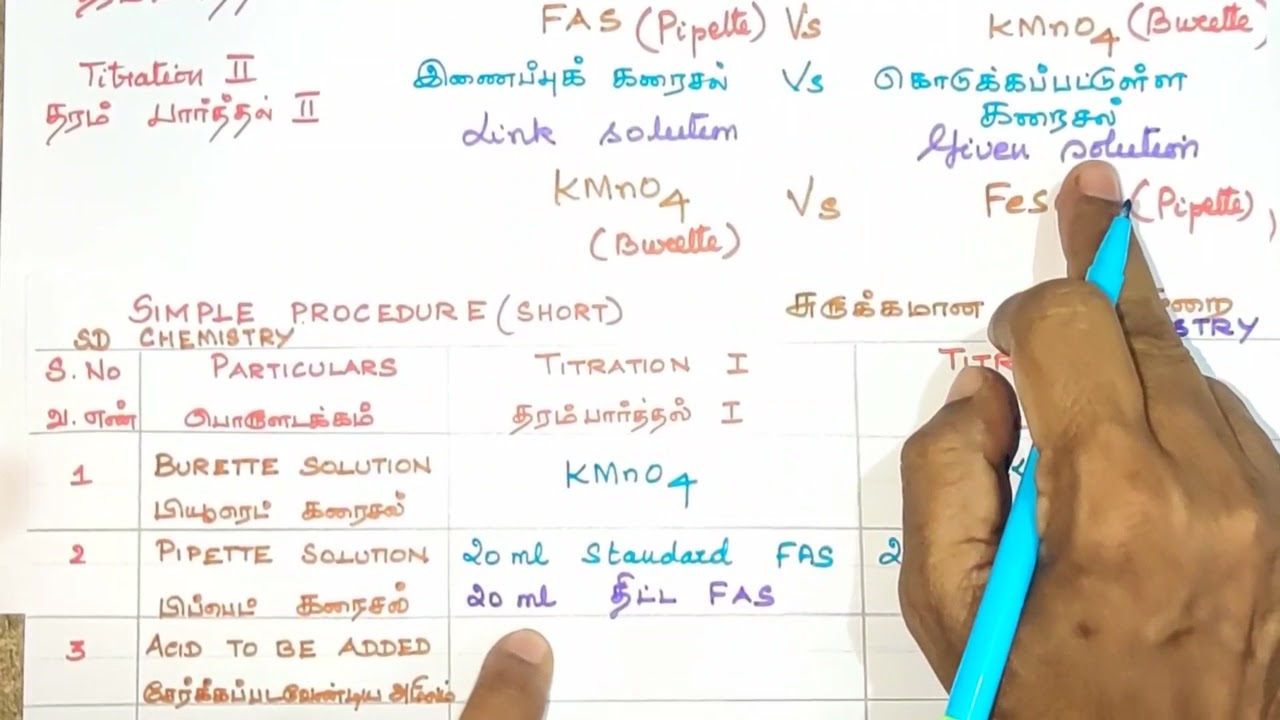 FAS (Pipette) Vs KMnO4 (Burette)
Titration II இணைப்புக் கரைசல் Vs கொடுக்கப்பட்டுள்ள
தரம் பார்த்தல் II கரைசல்
Link solution Given solution
KMnO4 Vs FeS (Pipette),
(Burette)
SIMPLE PROCEDURE (SHORT) சுருக்கமான
SD CHEMISTRY
S. No PARTICULARS TITRATION I
வ. எண் பொருளடக்கம் தரம்பார்த்தல் I
1 BURETTE SOLUTION KMnO4
பியூரெட் கரைசல்
2 PIPETTE SOLUTION 20 ml Standard FAS 2
பிப்பெட் கரைசல் 20 ml திட்ட FAS
3 ACID TO BE ADDED
சேர்க்கப்படவேண்டிய அமிலம்